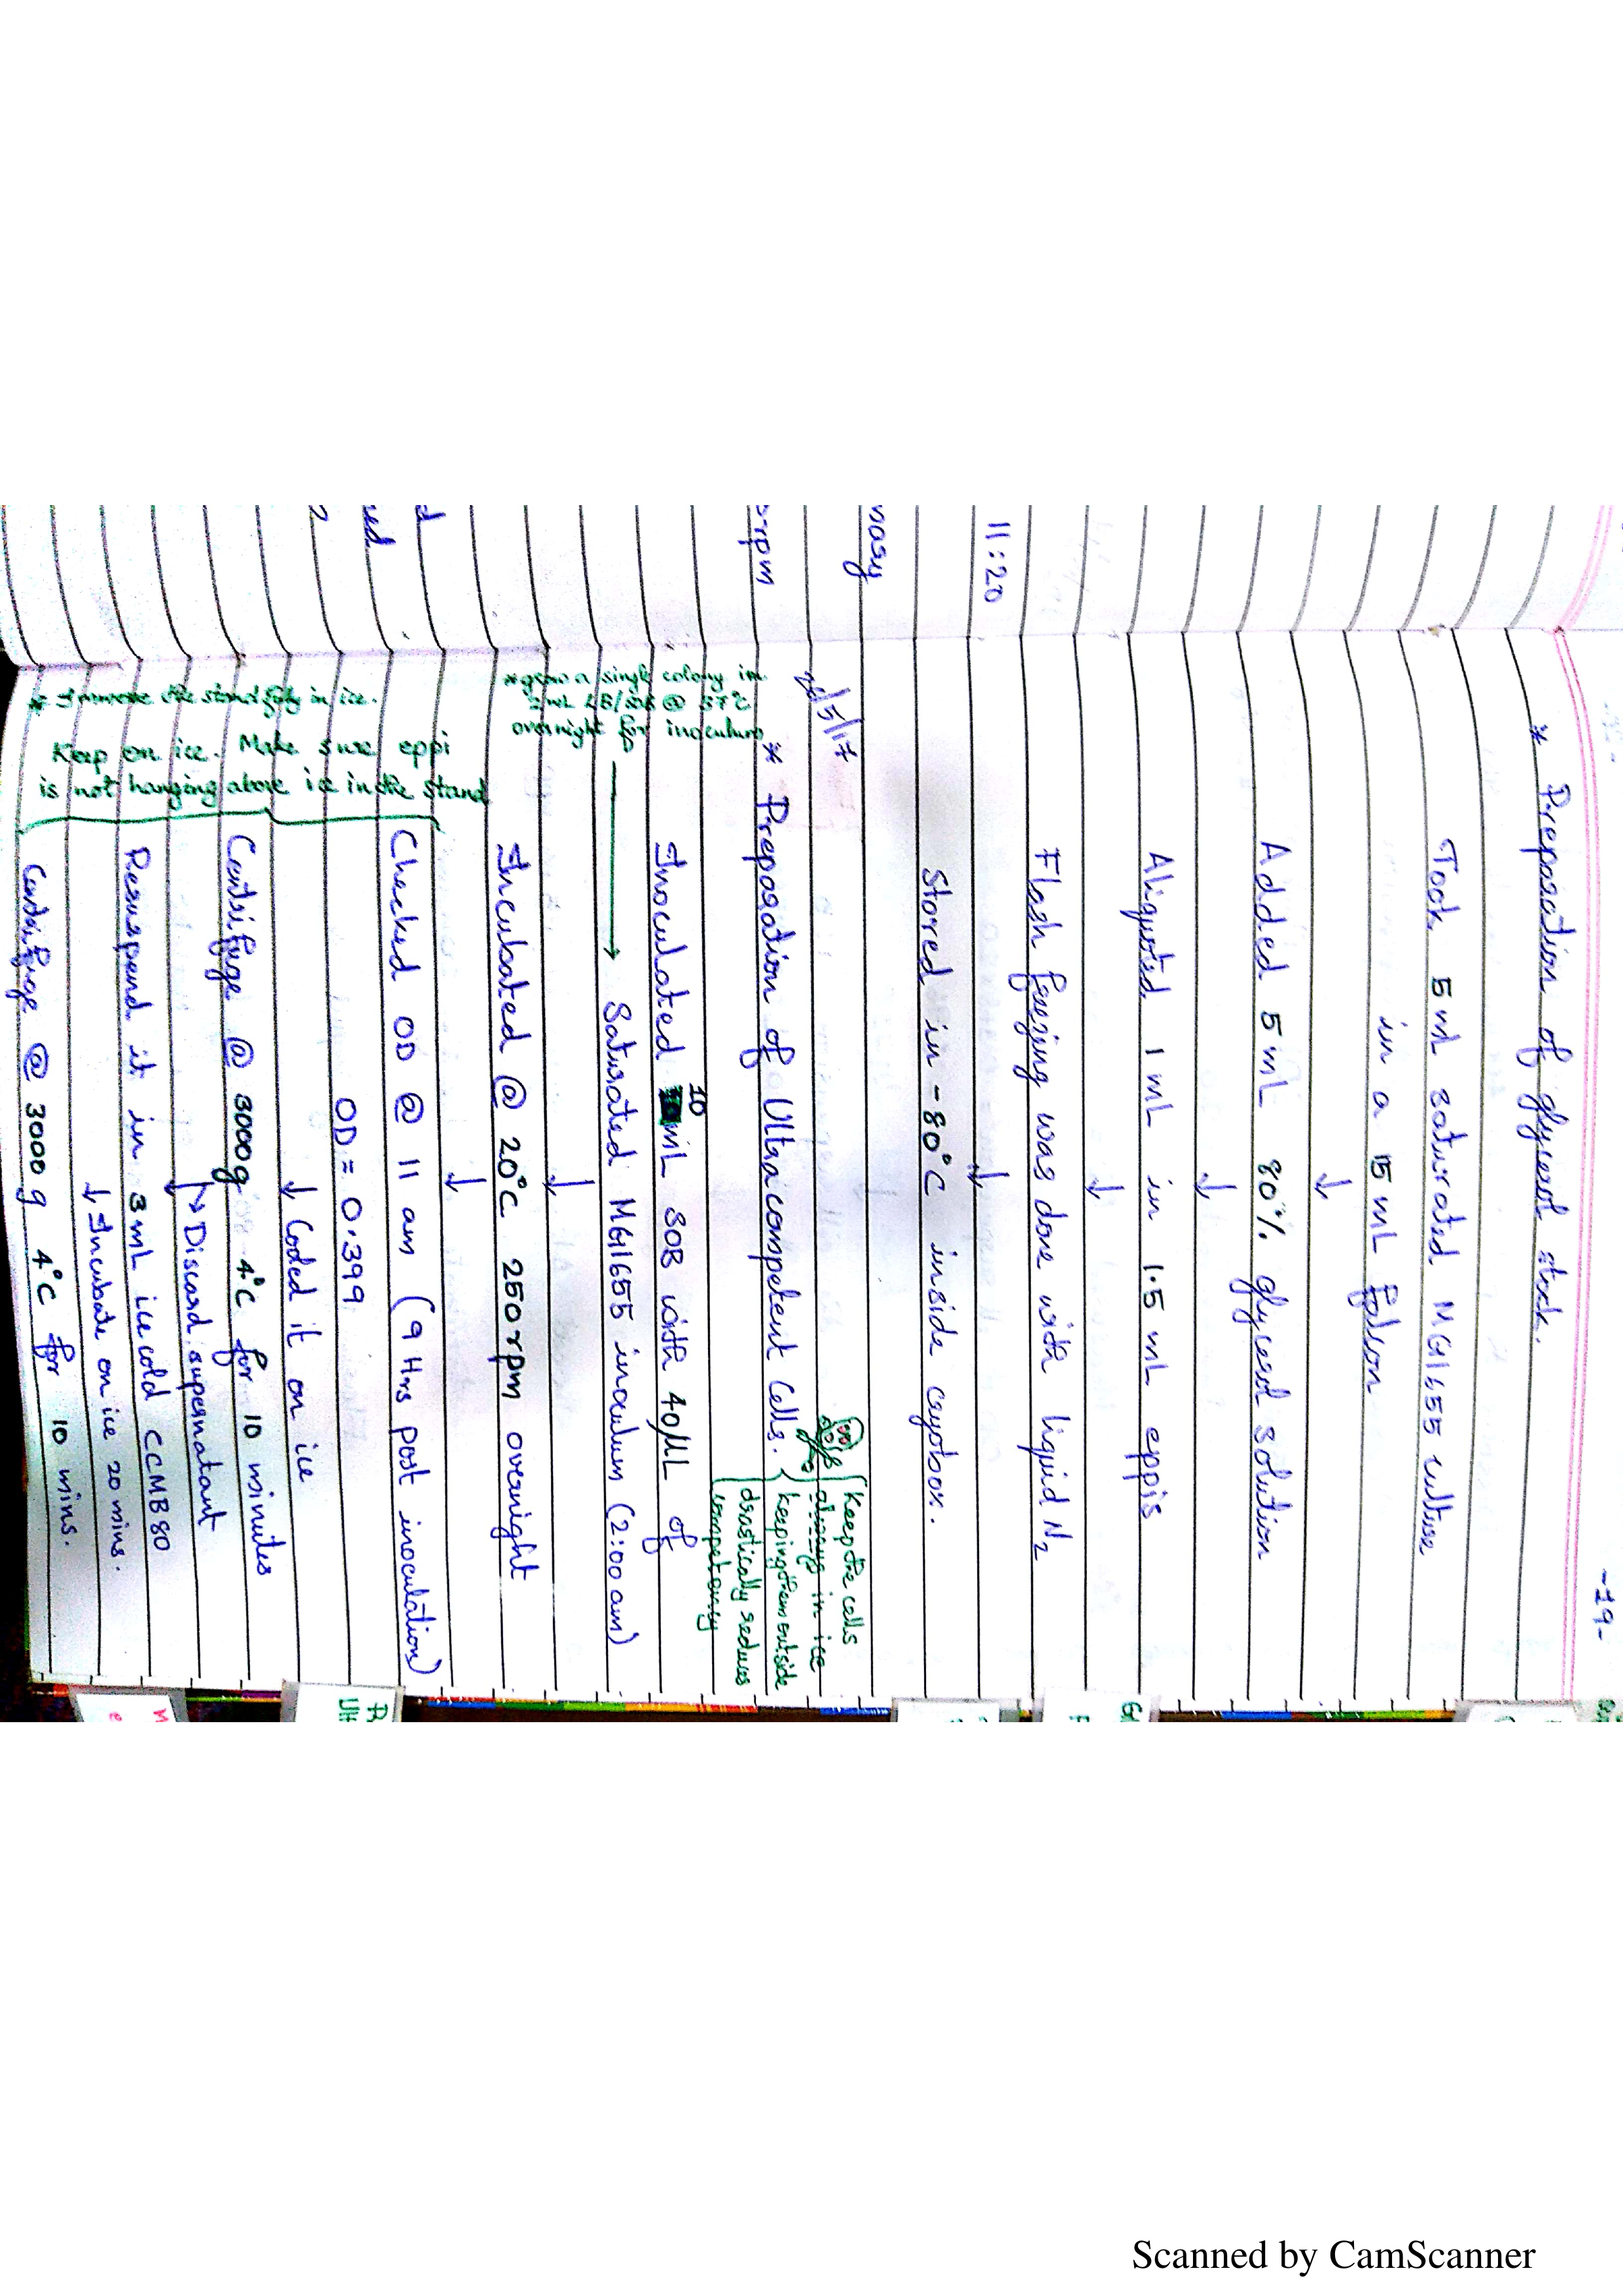 -19-
* Preparation of glycerol stock.
Took 5 ml saturated MG1655 culture
in a 15 mL Falcon
↓
Added 5 mL 80% glycerol solution
↓
Aliquoted 1 mL in 1.5 mL eppis
↓
Flash freezing was done with liquid N2
↓
Stored in -80°C inside cryobox.
11:20
rpm
ed
d
/5/17
Keep the cells
always in ice
keeping them outside
drastically reduces
competency
* Preparation of Ultra competent Cells.
* grow a single colony in
2 mL LB/SOB @ 37°C
overnight for inoculum
Inoculated 10 mL SOB with 40 µL of
→ Saturated MG1655 inoculum (2:00 am)
↓
Incubated @ 20°C 250rpm overnight
↓
Checked OD @ 11 am (9 Hrs post inoculation)
OD = 0.399
↓ Cooled it on ice
Centrifuge @ 3000g 4°C for 10 minutes
↓ → Discard supernatant
Resuspend it in 3 mL ice cold CCMB 80
↓ Incubate on ice 20 mins.
Centrifuge @ 3000 g 4°C for 10 mins.
Keep on ice. Make sure eppi
is not hanging above ice in the stand
* Immerse the stand fully in ice.
Scanned by CamScanner